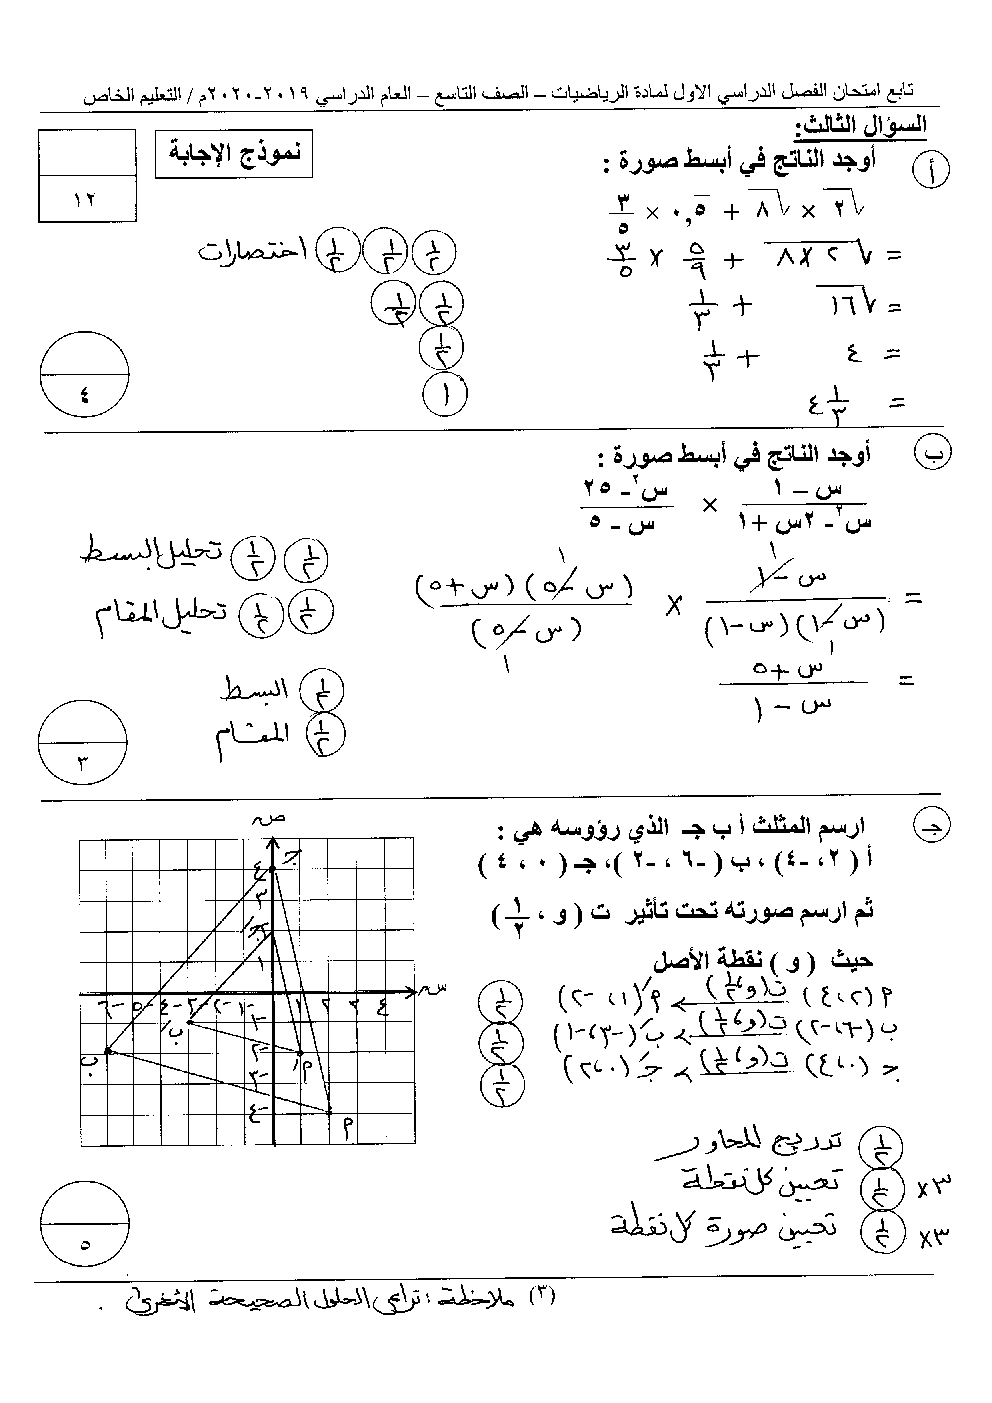 تابع امتحان الفصل الدراسي الاول لمادة الرياضيات – الصف التاسع – العام الدراسي ٢٠١٩-٢٠٢٠م / التعليم الخاص
السؤال الثالث:
نموذج الإجابة
١٢
أ أوجد الناتج في أبسط صورة :
√٢ × √٨ + ٠,٥̅ × ٣/٥
= √(٢ × ٨) + ٥/٩ × ٣/٥ ١/٢ ١/٢ ١/٢ اختصارات
= √١٦ + ١/٣ ١/٢ ١/٢
= ٤ + ١/٣ ١/٢
= ٤ ١/٣ ١
٤
ب أوجد الناتج في أبسط صورة :
(س – ١)/(س² - ٢س + ١) × (س² - ٢٥)/(س - ٥)
= (س - ١)/((س - ١)(س - ١)) × ((س - ٥)(س + ٥))/(س - ٥)
١/٢ ١/٢ تحليل البسط
١/٢ ١/٢ تحليل المقام
= (س + ٥)/(س - ١)
١/٢ البسط
١/٢ المقام
٣
جـ ارسم المثلث أ ب جـ الذي رؤوسه هي :
أ ( ٢ ، -٤) ، ب ( -٦ ، -٢ ) ، جـ ( ٠ ، ٤ )
ثم ارسم صورته تحت تأثير ت ( و ، ١/٢ )
حيث ( و ) نقطة الأصل
م (٢ ، -٤) ت(و، ١/٢) ← م́ (١ ، -٢) ١/٢
ب (-٦ ، -٢) ت(و، ١/٢) ← ب́ (-٣ ، -١) ١/٢
جـ (٠ ، ٤) ت(و، ١/٢) ← جـ́ (٠ ، ٢) ١/٢
ص
س
-٦ -٥ -٤ -٣ -٢ -١ ١ ٢ ٣ ٤
٤
٣
١
-١
-٢
-٣
-٤
جـ
جـ́
ب
ب́
م́
م
١/٢ تدريج المحاور
٣× ١/٢ تعيين كل نقطة
٣× ١/٢ تعيين صورة كل نقطة
٥
(٣) ملاحظة : تراعى الحلول الصحيحة الأخرى .